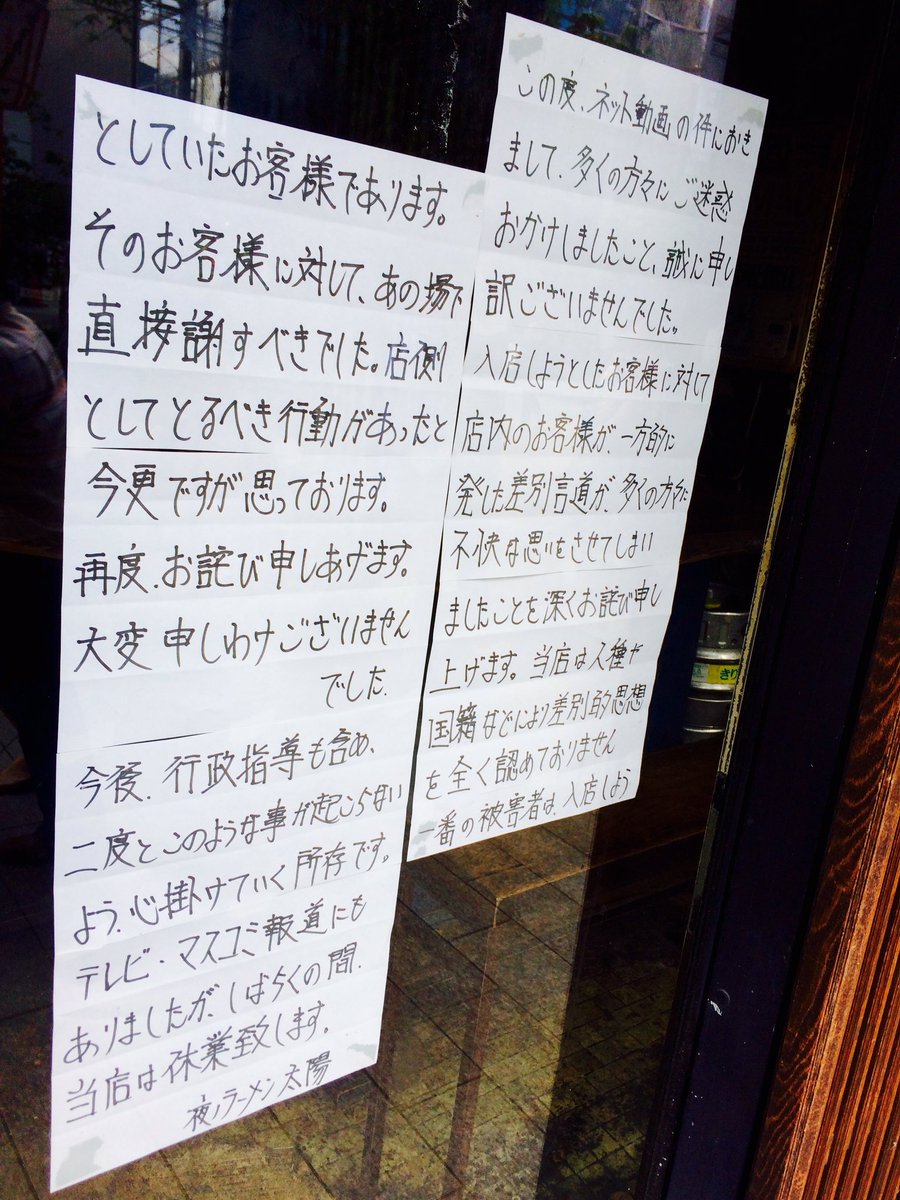 この度、ネット動画の件におき
まして、多くの方々にご迷惑
おかけしましたこと、誠に申し
訳ございませんでした。
入店しようとしたお客様に対して
店内のお客様が、一方的に
発した差別言道が、多くの方々に
不快な思いをさせてしまい
ましたことを深くお詫び申し
上げます。当店は人種や
国籍などにより差別的思想
を全く認めておりません
一番の被害者は、入店しよう
としていたお客様であります。
そのお客様に対して、あの場で
直接謝すべきでした。店側
としてとるべき行動があったと
今更ですが思っております。
再度、お詫び申しあげます。
大変申しわけございません
でした.
今後、行政指導も含め、
二度とこのような事が起こらない
よう、心掛けていく所存です。
テレビ・マスコミ報道にも
ありましたが、しばらくの間、
当店は休業致します。
夜ノラーメン太陽
きり